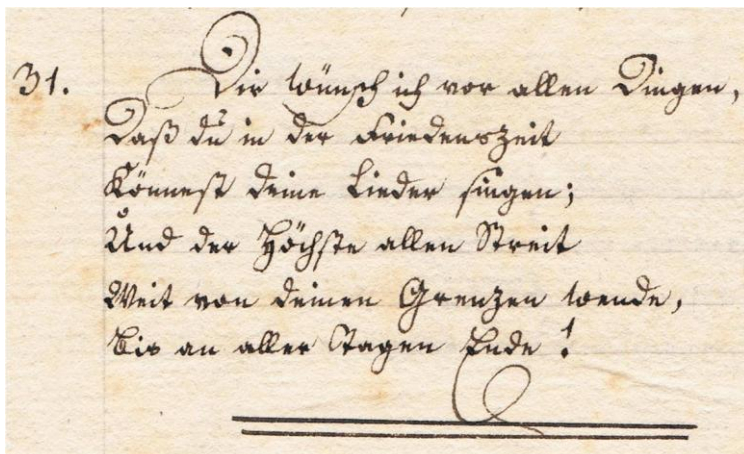 31. Dir wünsch ich vor allen Dingen,
Daß du in der Friedenszeit
Könnest deine Lieder singen;
Und der Höchste allen Streit
Weit von deinen Grenzen wende,
bis an aller Tagen Ende!